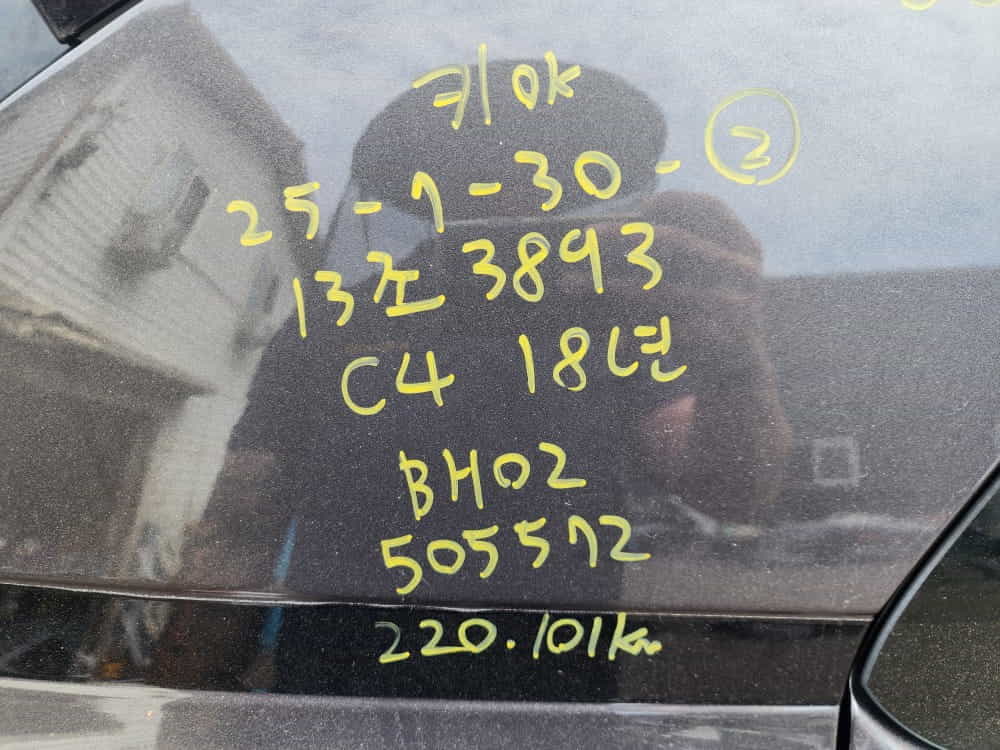 키 OK
25-7-30-②
13조 3893
C4 18년
BH02
505572
220.101km